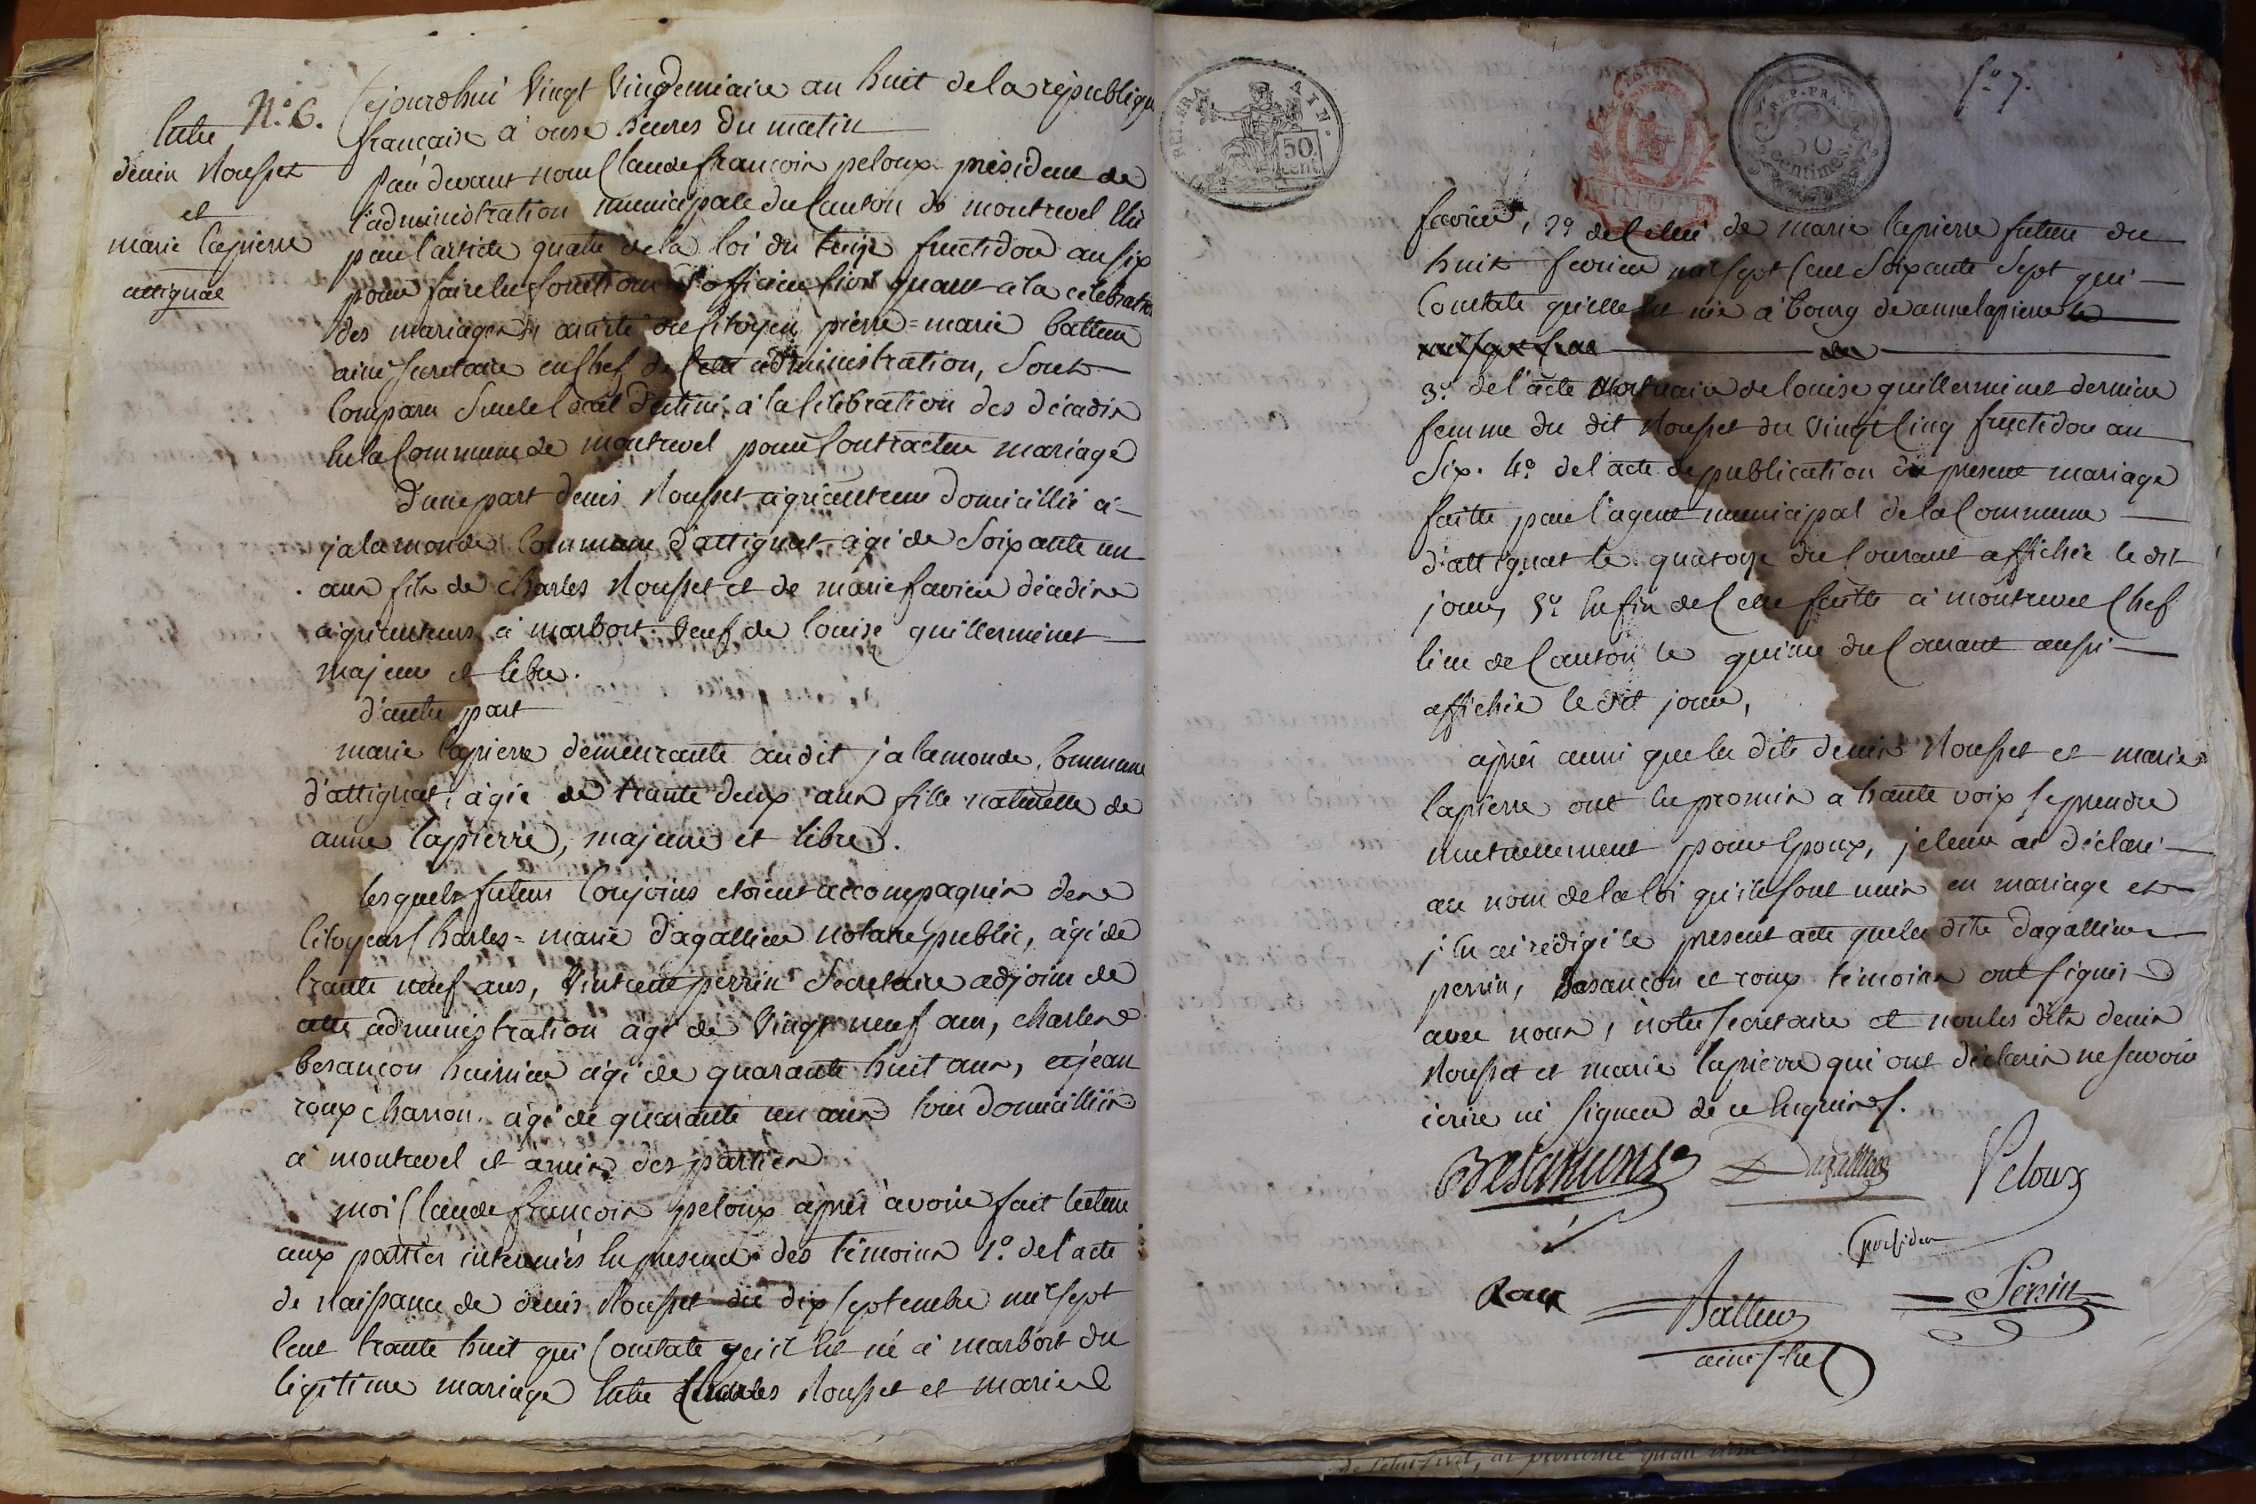 N.° 6.
Entre
denis Rousset
et
marie lapierre
attignat
Cejourdhui Vingt Vingdemiaire an huit de la république
française à onse heures du matin
Par devant nous Claude françois peloux président de
l'administration municipale du Canton de montrevel Elu
par l'article quatre de la loi du treize fructidor an six
pour faire les fonctions d'officier Civil quant a la célébration
des mariages assisté du Citoyen pierre=marie batteur
ainé Secretaire en Chef de Cette administration, Sont
Comparu Sur le local destiné à la Célébration des décadis
En la Commune de montrevel pour Contracter mariage
D'une part denis Rousset agriculteur domicillié à
jalamonde Commune d'attignat agé de Soixante un
ans fils de Charles Rousset et de marie favier décédés
agriculteurs à marbost Veuf de louise guillerminet
majeur et libre.
d'autre part
marie lapierre demeurante au dit jalamonde, Commune
d'attignat, agée de trante deux ans fille naturelle de
anne lapierre, majeure et libre.
lesquels futurs Conjoins etoient accompagnés des
Citoyens Charles=marie dagallier notaire public, agé de
trante neuf ans, Vintcent perrin Secretaire adjoint de
cette administration agé de Vingt neuf ans, charles
besançon huissier agé de quarante huit ans, et jean
roux charron agé de quarante un ans tous domicilliés
à montrevel et amis des parties
moi Claude françois peloux après avoir fait lecture
aux parties intenniés En presence des témoins 1.° de l'acte
de Naissance de denis Rousset du dix septembre mil sept
Cent trante huit qui Constate qu'il Est né à marbost du
légitime mariage Entre Charles Rousset et marie
REP. FRA
50
cent.
REP. FRA.
50
centimes
f.° 7.
favier, 2° de Celui de marie lapierre future du
huit fevrier mil sept Cent Soixante Sept qui
Constate qu'elle Est née à bourg de anne lapierre
3.° de l'acte Mortuaire de louise guillerminet derniere
femme du dit Rousset du Vingt Cinq fructidor an
Six. 4.° de l'acte de publication du present mariage
faitte par l'agent municipal de la Commune
d'attignat le quatorze du Courant affichée le dit
jour, 5.° Enfin de Celle faitte à montrevel Chef
lieu de Canton le quinze du Courant aussi
affichée le dit jour,
après aussi que les dits denis Rousset et marie
lapierre ont Eu promis a haute voix se prendre
mutuellement pour Epoux, je leur ai déclaré
au nom de la loi qu'ils sont unis en mariage et
j'en ai rédigé le present acte que les dits dagallier
perrin, Besançon et roux témoins ont signés
avec nous, notre secretaire et non les dits denis
Rousset et marie lapierre qui ont déclarés ne savoir
écrire ni signer de ce Enquis.
Besançon Dagallier Peloux
president
Roux Batteur Perrin
ainé